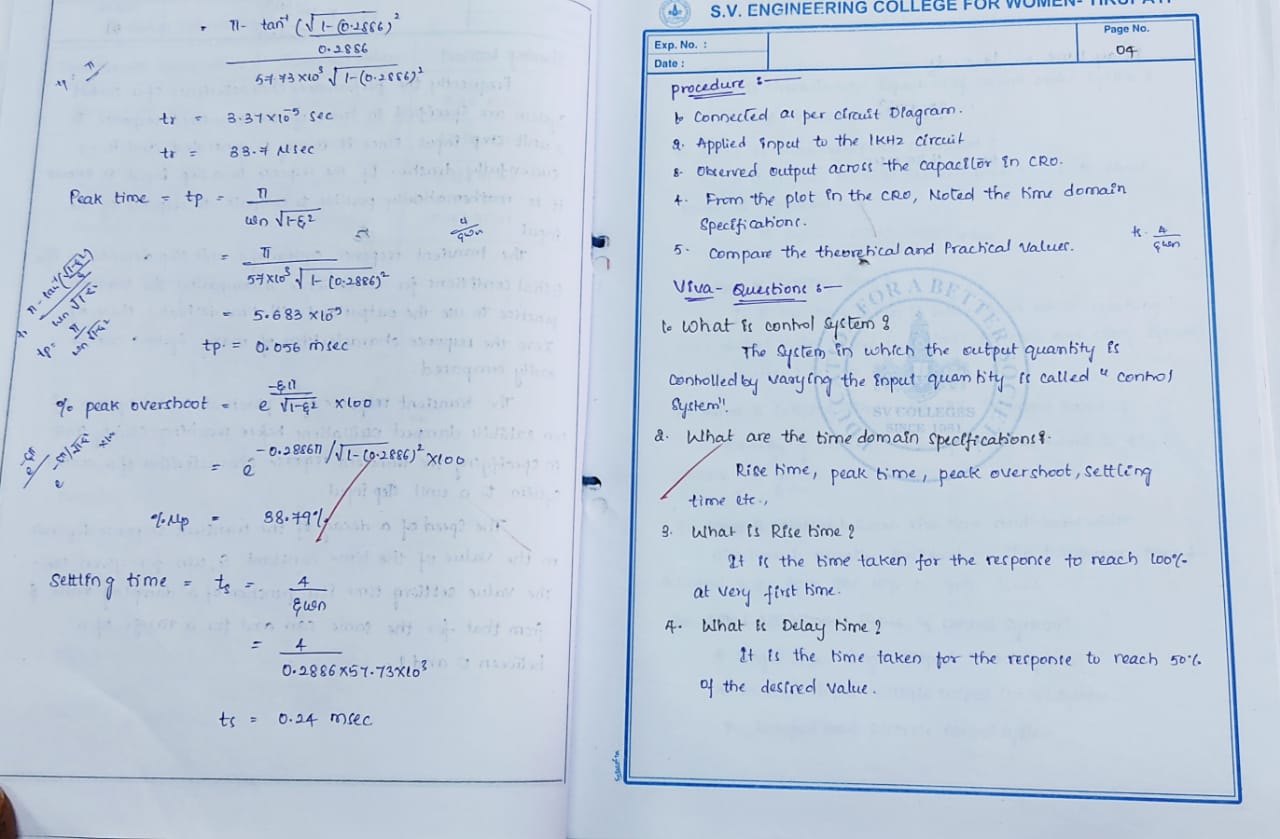 = π- tan⁻¹ (√1-(0.2886)²
0.2886
57.73×10³ √1-(0.2886)²
tr = 3.37×10⁻⁵ sec
tr = 33.7 μsec
Peak time = tp = π
ωn √1-ξ²
= π
57×10³ √1-(0.2886)²
= 5.683 ×10⁻⁵
tp = 0.056 msec
% peak overshoot = e -ξπ/√1-ξ² ×100
= e -0.2886π/√1-(0.2886)² ×100
%Mp = 38.79%
Settling time = ts = 4
ξωn
= 4
0.2886×57.73×10³
ts = 0.24 msec
S.V. ENGINEERING COLLEGE FOR WOMEN-
Exp. No. :
Date :
Page No.
04
procedure :-
1. Connected as per circuit Diagram.
2. Applied input to the 1KHz circuit
3. Observed output across the capacitor in CRO.
4. From the plot in the CRO, Noted the time domain
Specifications.
5. Compare the theoretical and Practical values.
ts 4
ξωn
Viva- Questions :-
1. What is control system ?
The System in which the output quantity is
controlled by varying the input quantity is called " control
System".
2. What are the time domain specifications?
Rise time, peak time, peak overshoot, settling
time etc.,
3. What is Rise time ?
It is the time taken for the response to reach 100%
at very first time.
4. What is Delay time ?
It is the time taken for the response to reach 50%
of the desired value.
SV COLLEGES
SINCE 1981